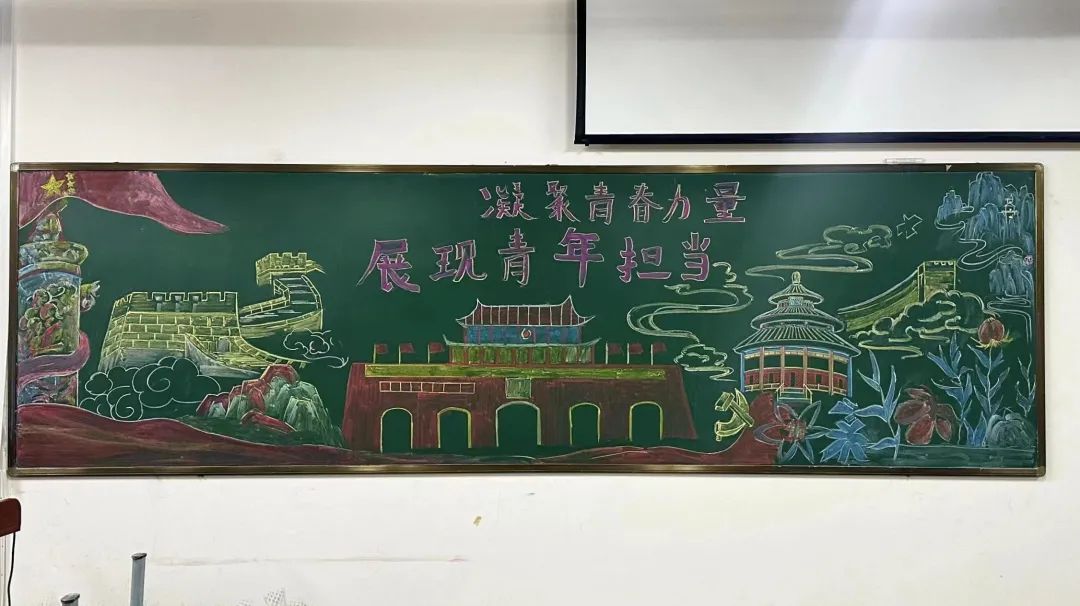 凝聚青春力量
展现青年担当